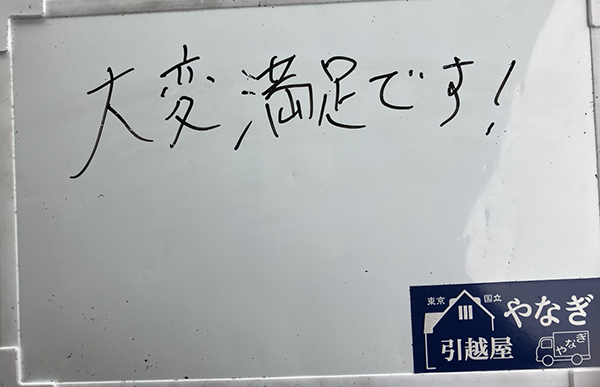 大変満足です!
東京 国立 やなぎ
引越屋 やなぎ